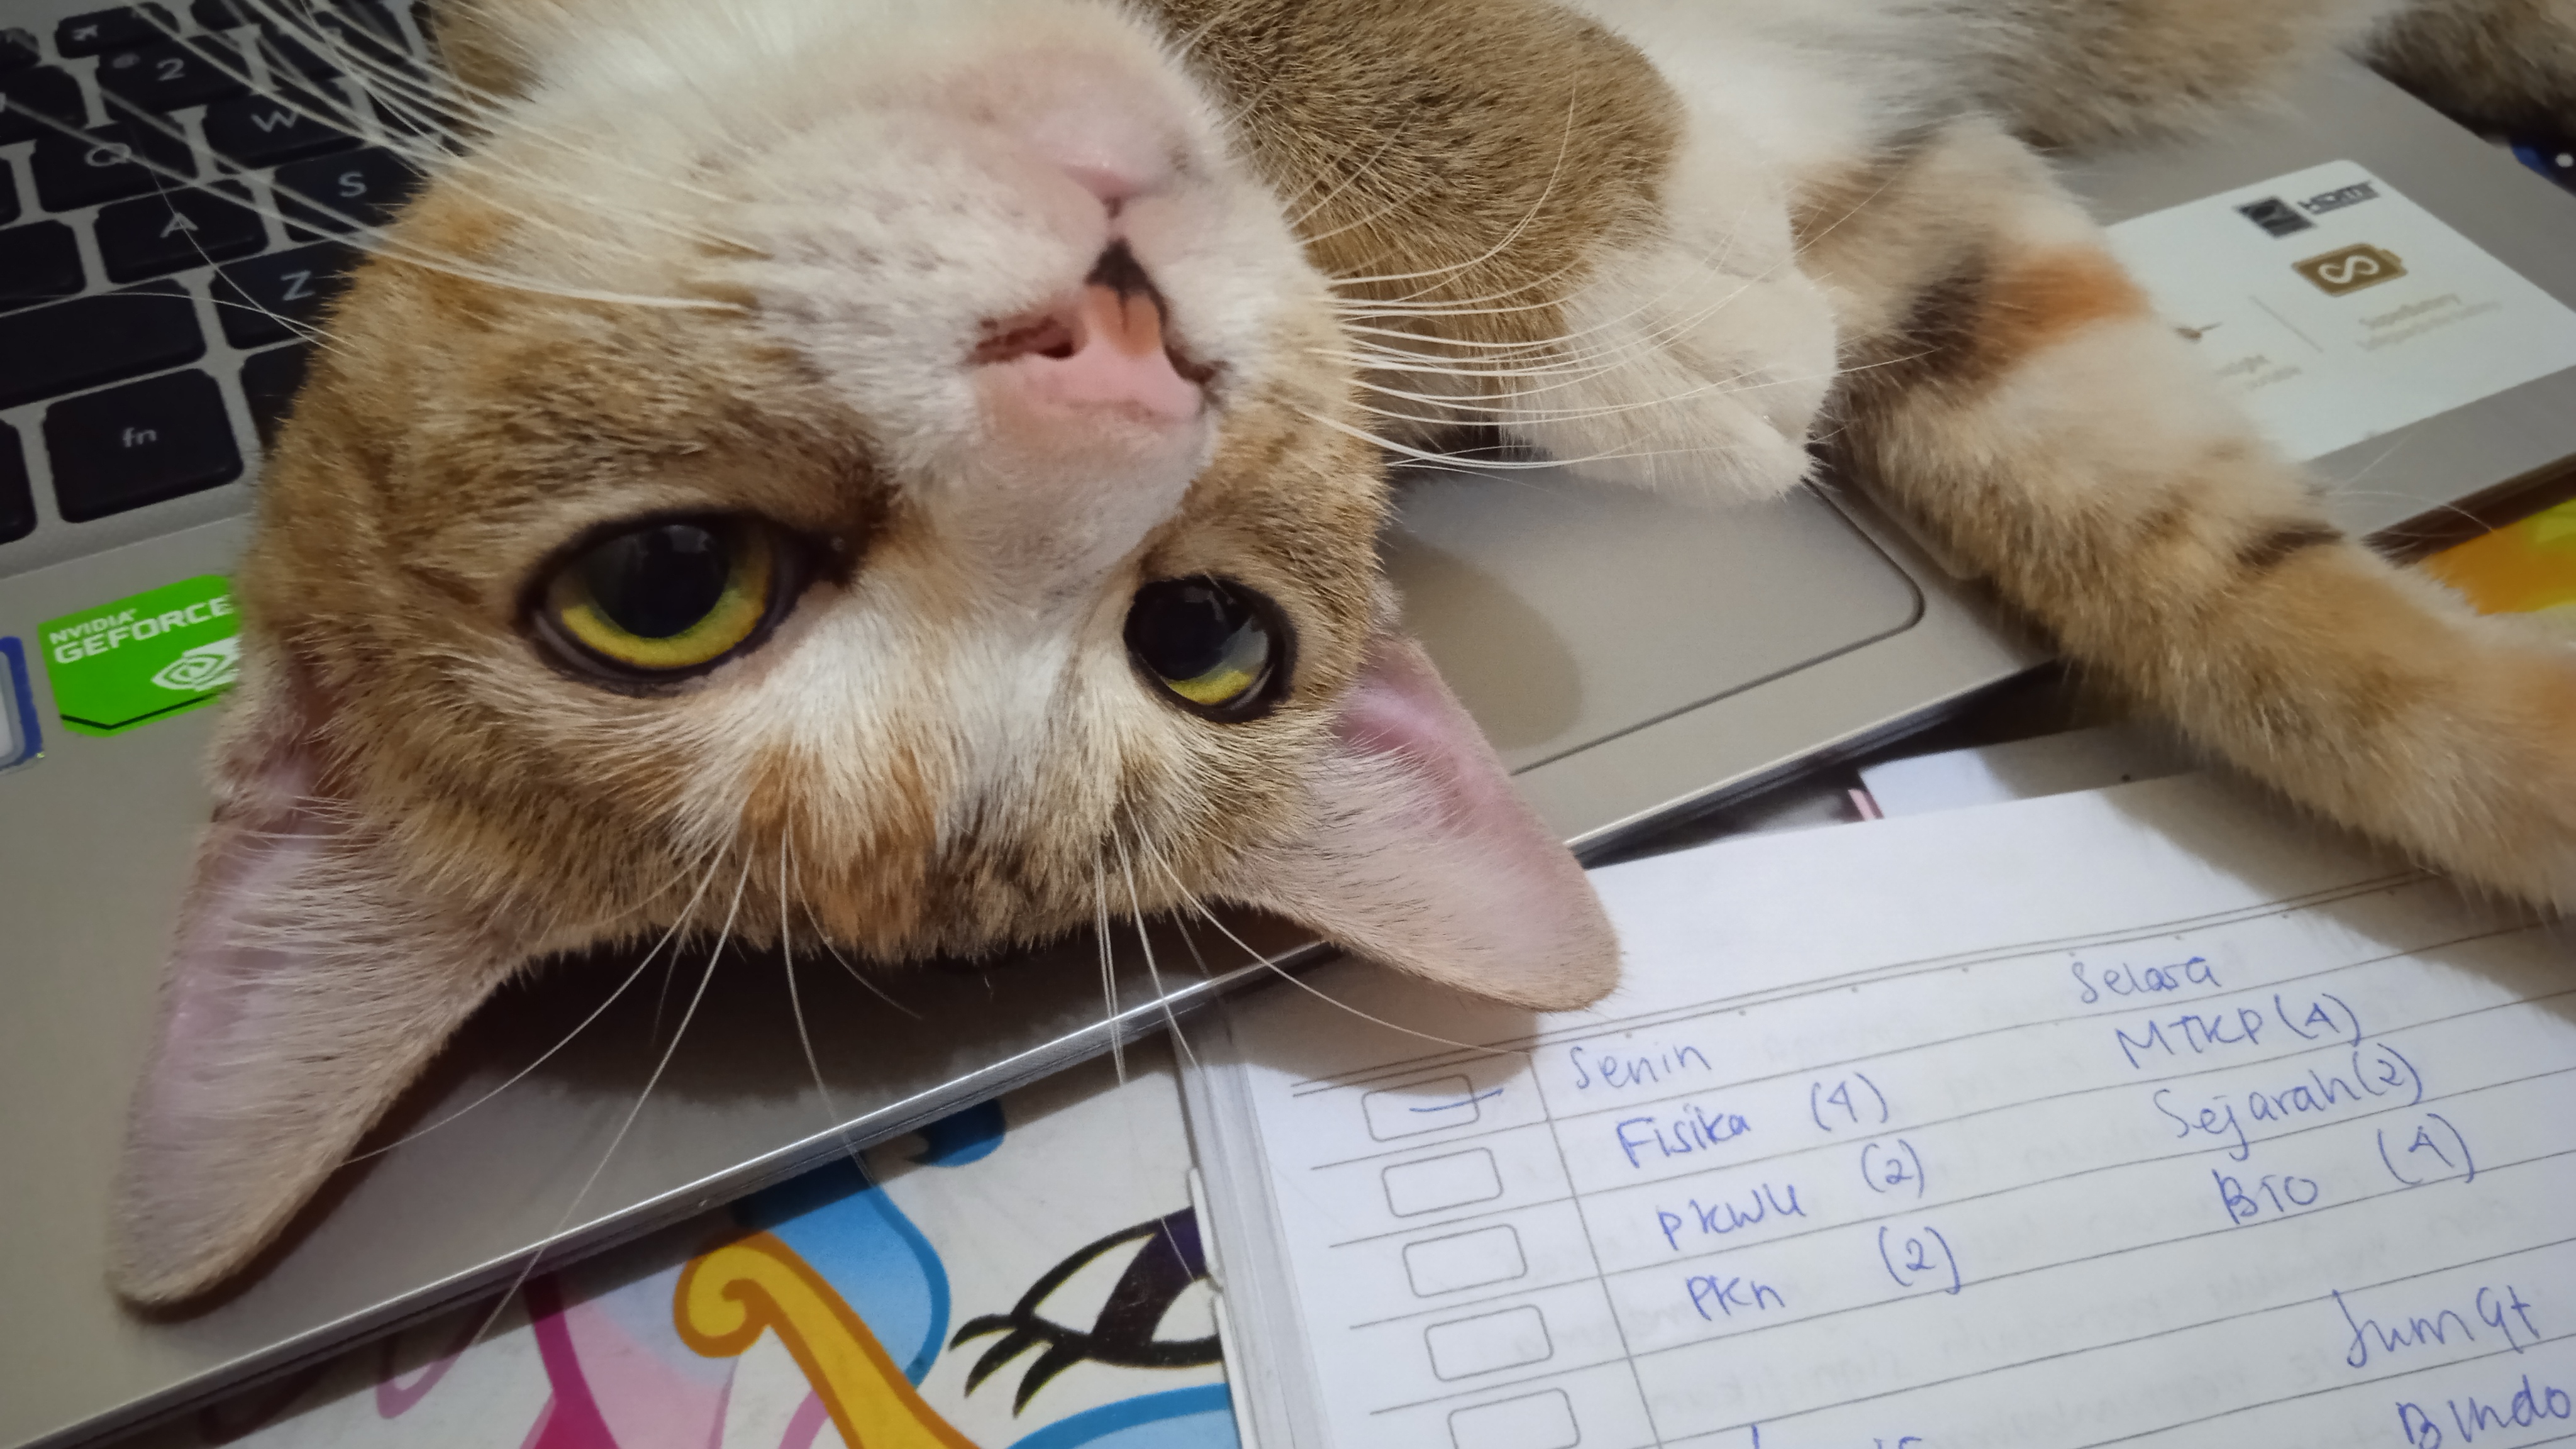 2
W
Q
S
A
Z
fn
NVIDIA
GEFORCE
HDMI
Senin
Fisika (4)
PKWU (2)
PKn (2)
Selasa
MTKP (4)
Sejarah (2)
BIO (4)
Jumat
B Indo